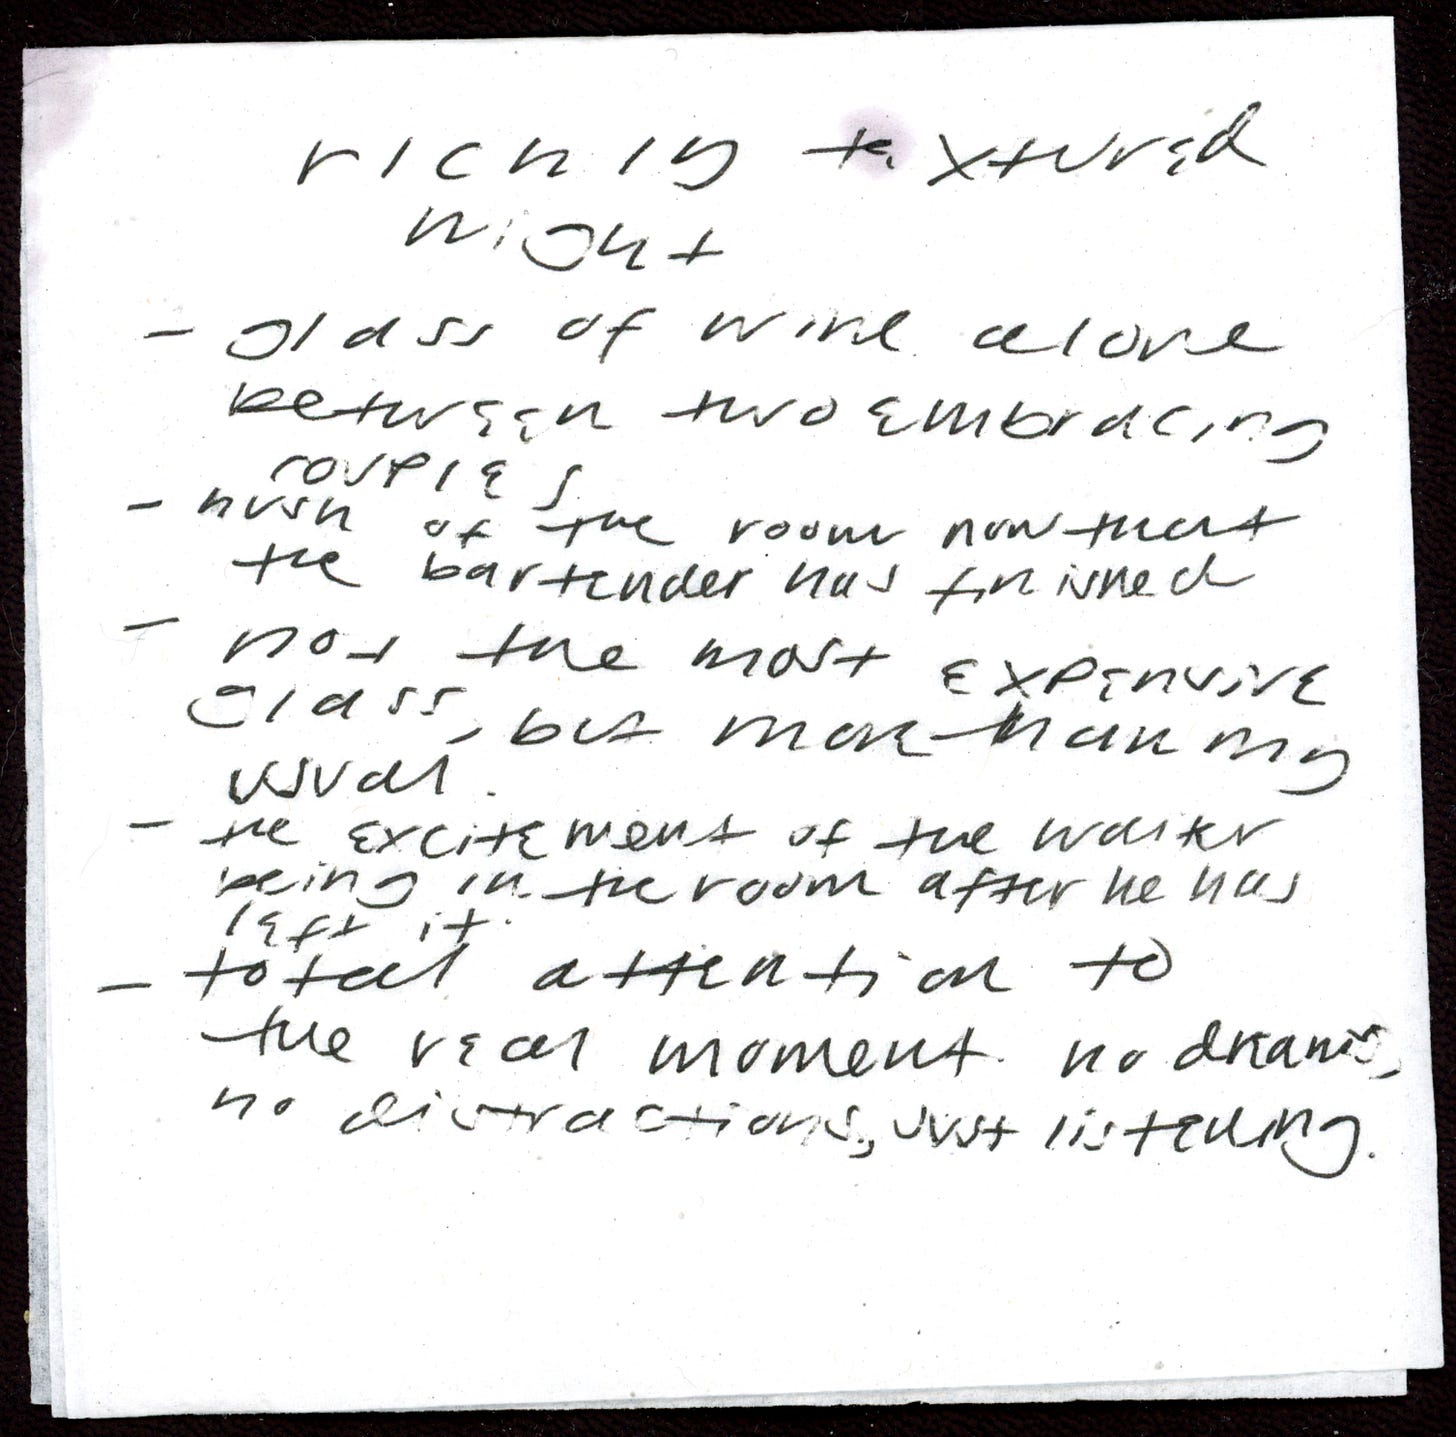 richly textured
night
- glass of wine alone
between two embracing
couples
- hush of the room now that
the bartender has finished
- not the most expensive
glass, but more than my
usual.
- the excitement of the waiter
being in the room after he has
left it.
- total attention to
the real moment. no dreams,
no distractions, just listening.